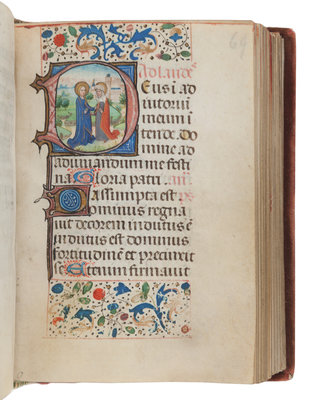 69
Ad laudes
Deus i ad
iutoriu
meum i
tende. Do
mine ad
adiuuandum me festi
na Gloria patri an̄
Assumpta est ps
Dominus regna
uit decorem indutus ē
indutus est dominus
fortitudinē et precinxit
se Etenim firmauit